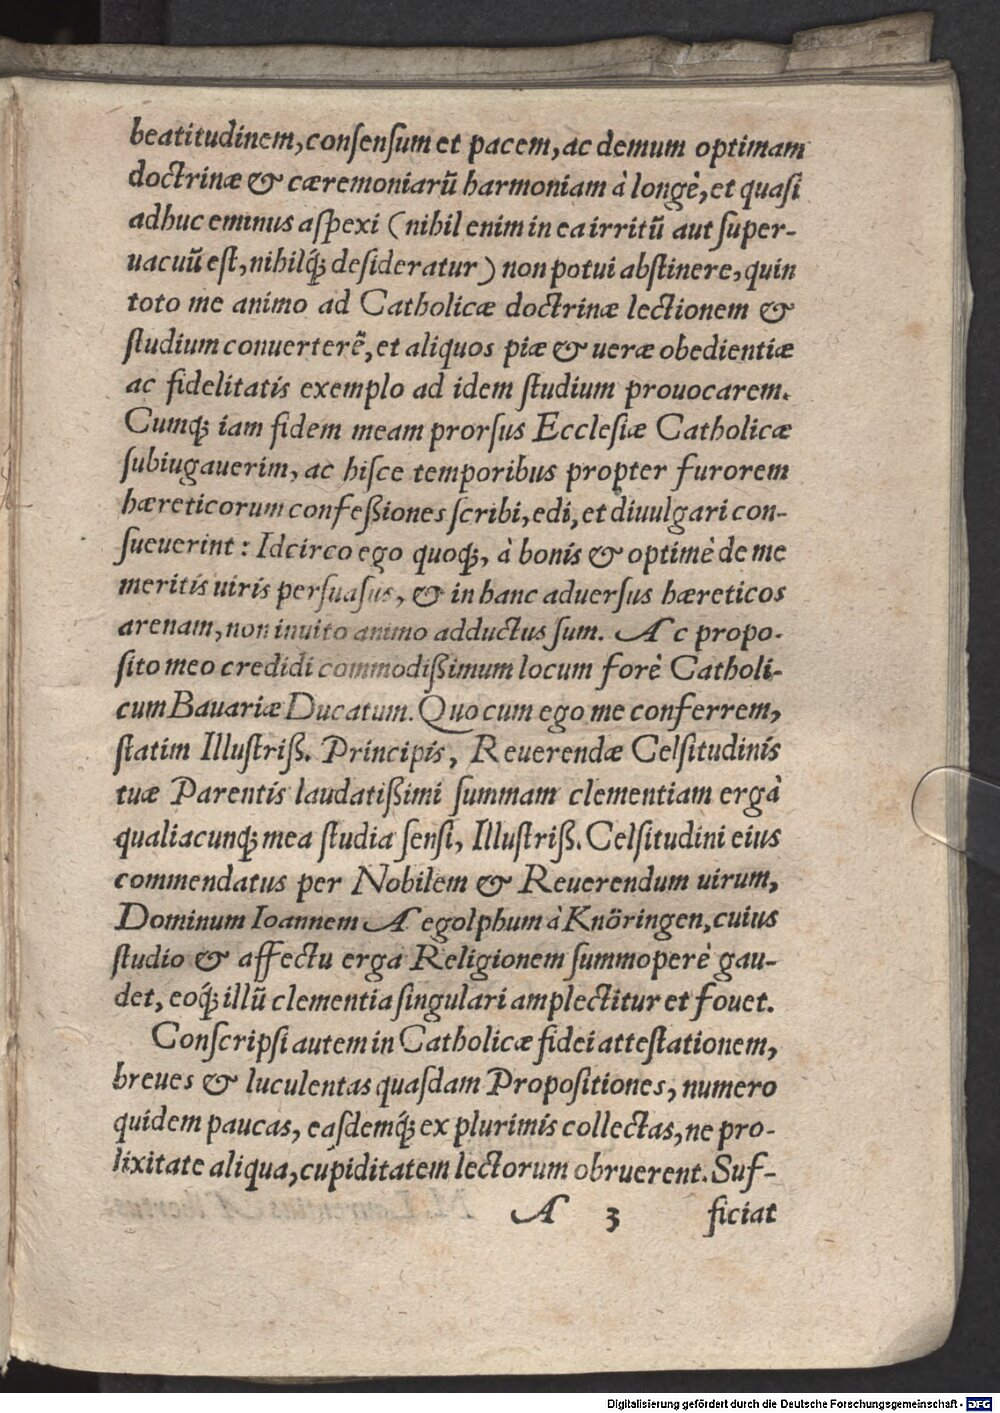 beatitudinem, conſenſum et pacem, ac demum optimam
doctrinæ & cæremoniarū harmoniam à longè, et quaſi
adhuc eminus aſpexi (nihil enim in ea irritū aut ſuper-
uacuū eſt, nihilq́; deſideratur) non potui abſtinere, quin
toto me animo ad Catholicæ doctrinæ lectionem &
ſtudium conuerterē, et aliquos piæ & ueræ obedientiæ
ac fidelitatis exemplo ad idem ſtudium prouocarem.
Cumq; iam fidem meam prorſus Eccleſiæ Catholicæ
ſubiugauerim, ac hiſce temporibus propter furorem
hæreticorum confeßiones ſcribi, edi, et diuulgari con-
ſueuerint: Idcirco ego quoq;, à bonis & optimè de me
meritis uiris perſuaſus, & in hanc aduerſus hæreticos
arenam, non inuito animo adductus ſum. Ac propo-
ſito meo credidi commodißimum locum forè Catholi-
cum Bauariæ Ducatum. Quo cum ego me conferrem,
ſtatim Illuſtriß. Principis, Reuerendæ Celſitudinis
tuæ Parentis laudatißimi ſummam clementiam ergà
qualiacunq; mea ſtudia ſenſi, Illuſtriß. Celſitudini eius
commendatus per Nobilem & Reuerendum uirum,
Dominum Ioannem Aegolphum à Knöringen, cuius
ſtudio & affectu erga Religionem ſummoperè gau-
det, eoq́; illū clementia ſingulari amplectitur et fouet.
Conſcripſi autem in Catholicæ fidei atteſtationem,
breues & luculentas quaſdam Propoſitiones, numero
quidem paucas, eaſdemq́; ex plurimis collectas, ne pro-
lixitate aliqua, cupiditatem lectorum obruerent. Suf-
A 3 ficiat
Digitalisierung gefördert durch die Deutsche Forschungsgemeinschaft - DFG